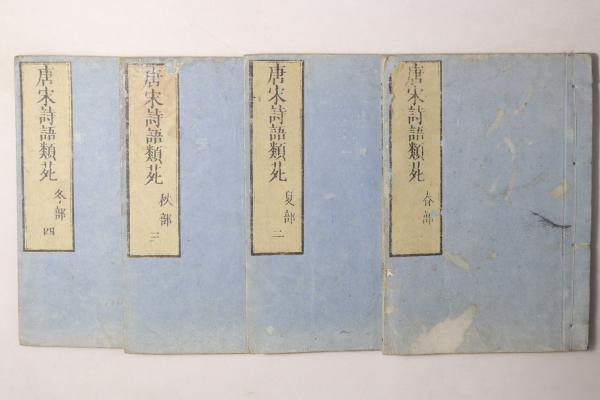 唐宋詩語類苑
春部
唐宋詩語類苑
夏部 二
唐宋詩語類苑
秋部 三
唐宋詩語類苑
冬部 四